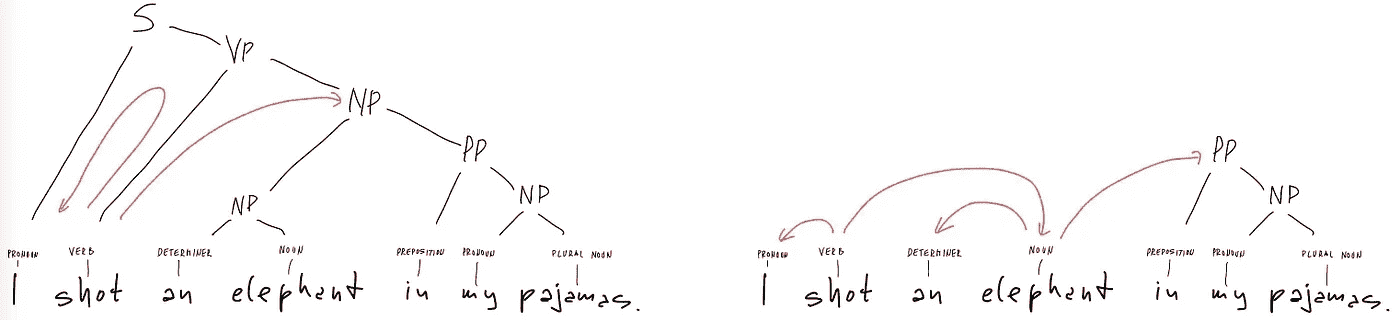 S
VP
NP
PP
NP NP
PRONOUN VERB DETERMINER NOUN PREPOSITION PRONOUN PLURAL NOUN
I shot an elephant in my pajamas.
PP
NP
PRONOUN VERB DETERMINER NOUN PREPOSITION PRONOUN PLURAL NOUN
I shot an elephant in my pajamas.